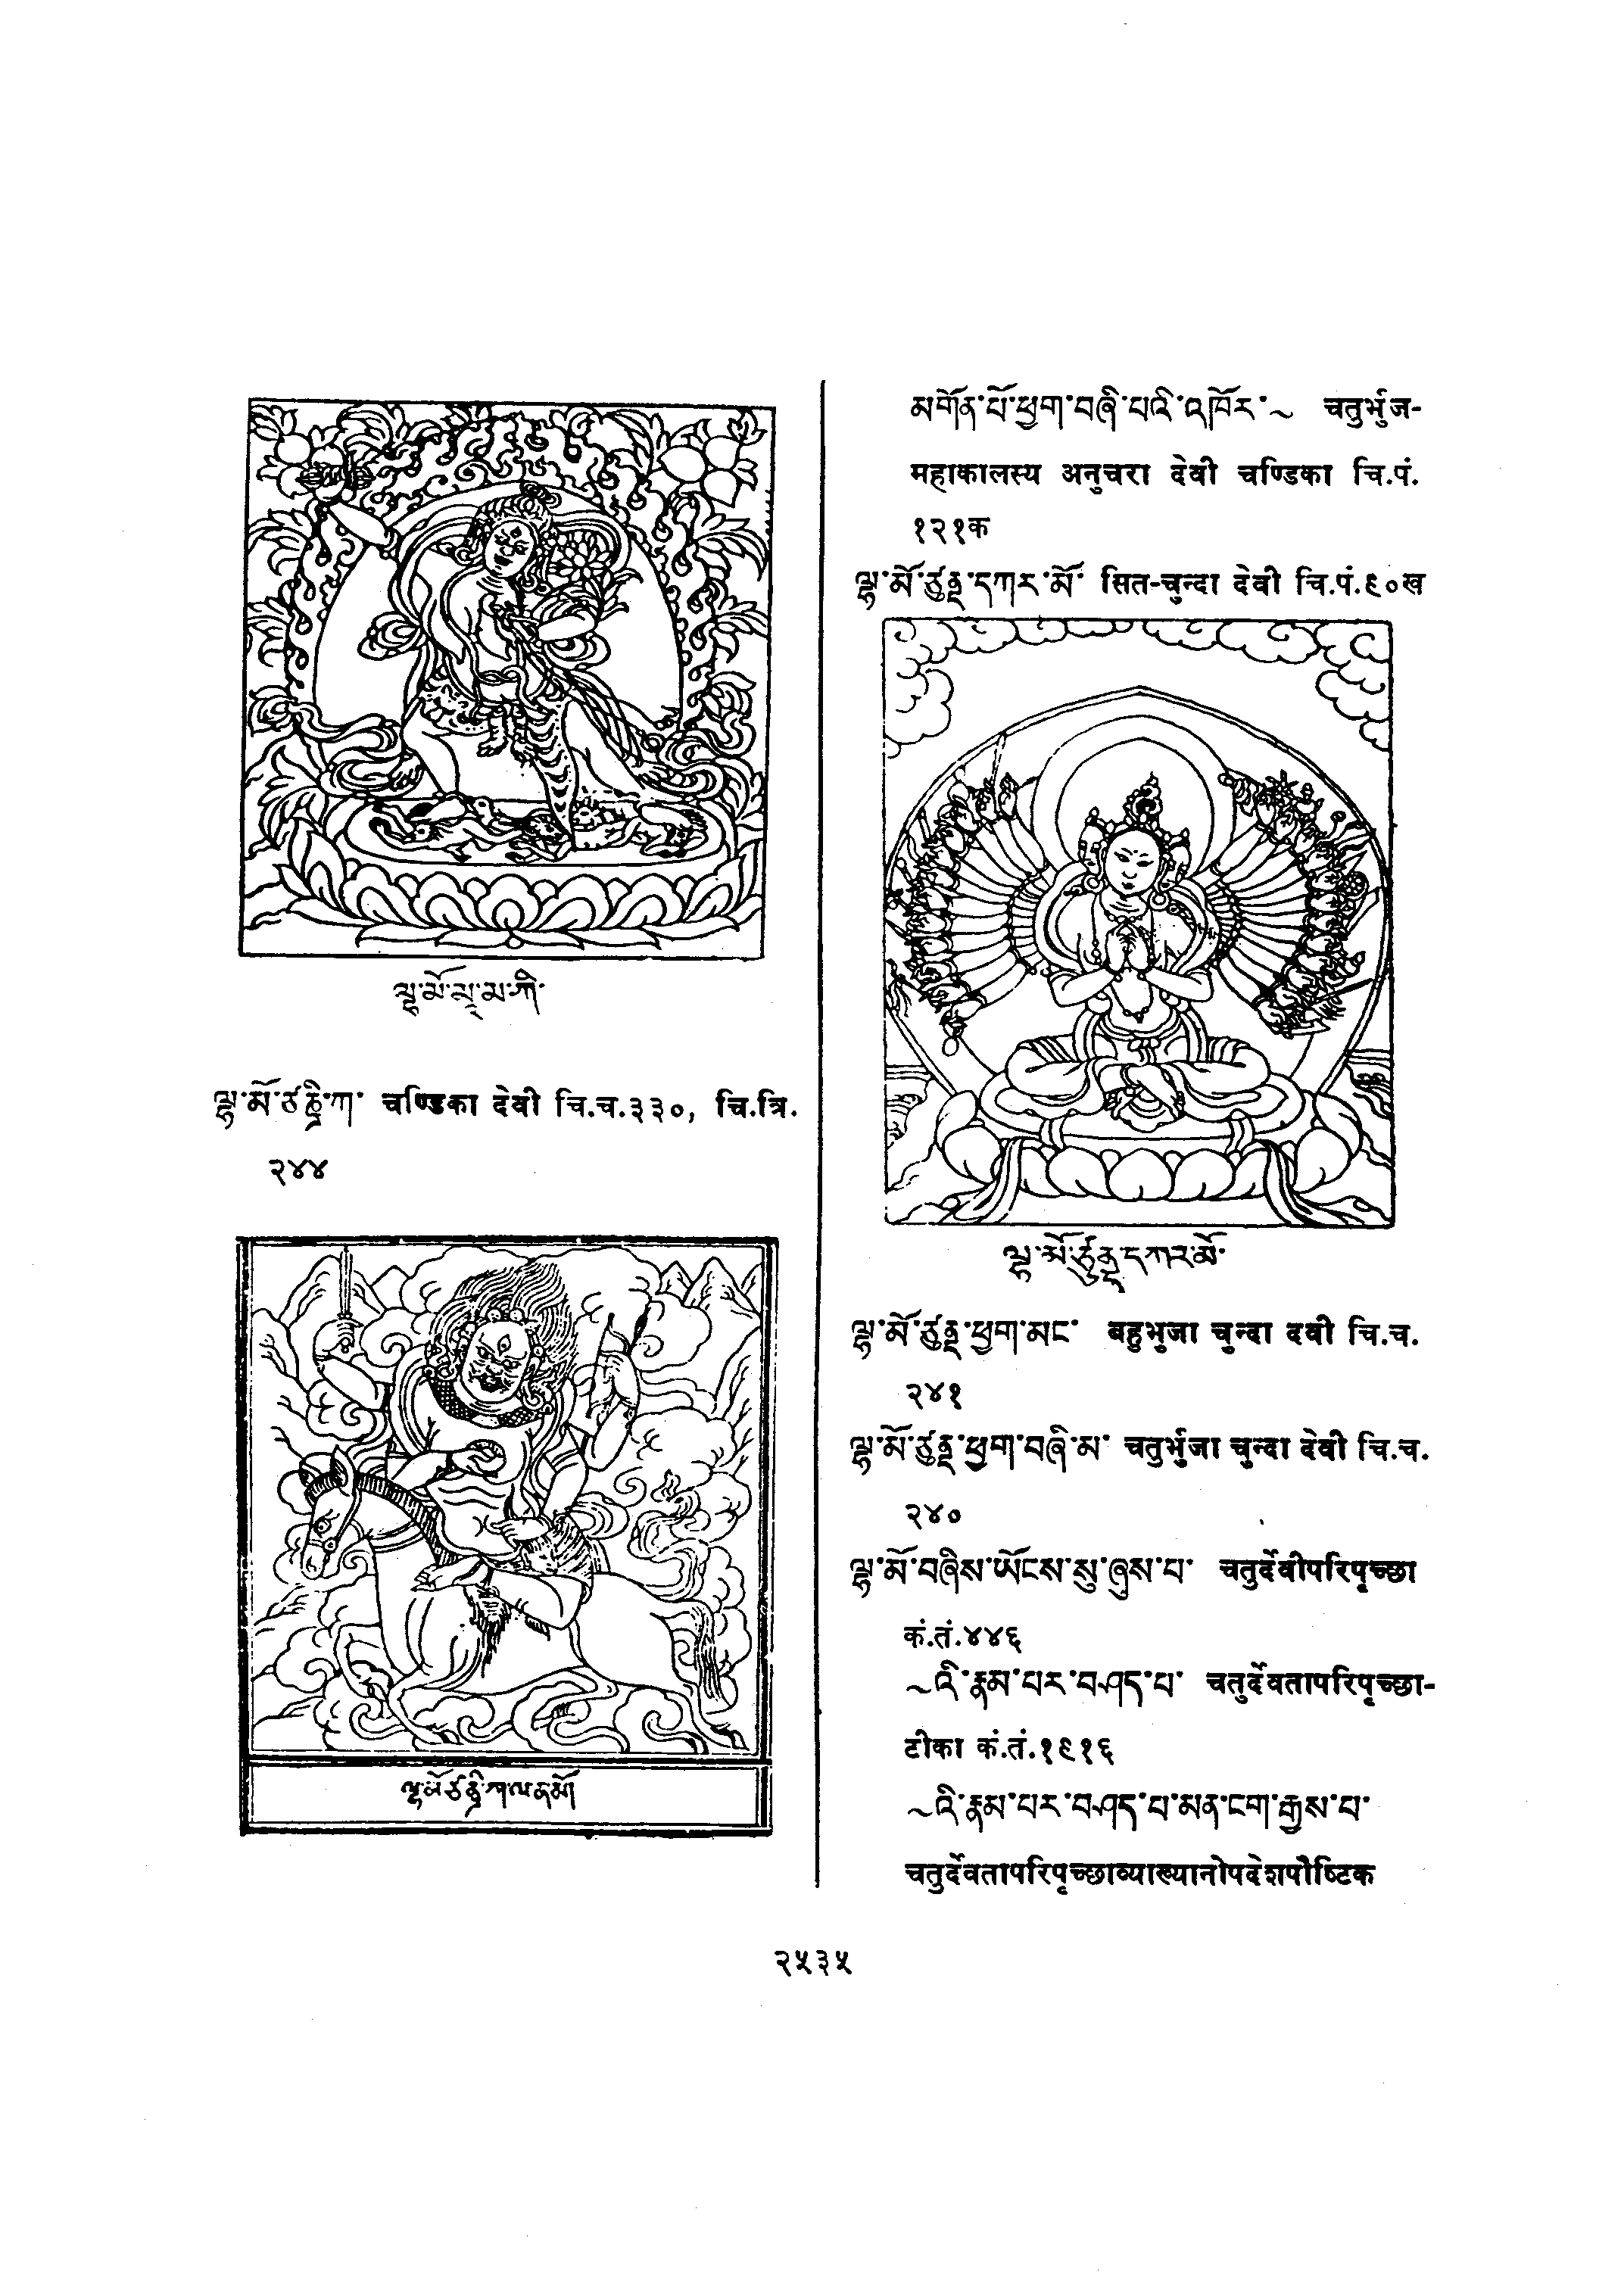 ལྷ་མོ་ཙཎྜི་ཀ་ चण्डिका देवी चि.च.३३०, चि.त्रि.
२४४
མགོན་པོ་ཕྱག་བཞི་པའི་འཁོར་~ चतुर्भुज-
महाकालस्य अनुचरा देवी चण्डिका चि.पं.
१२१क
ལྷ་མོ་ཙུནྡ་དཀར་མོ་ सित-चुन्दा देवी चि.पं.९०ख
ལྷ་མོ་ཙུནྡ་དཀར་མོ་
ལྷ་མོ་ཙུནྡ་ཕྱག་མང་ बहुभुजा चुन्दा दवी चि.च.
२४१
ལྷ་མོ་ཙུནྡ་ཕྱག་བཞི་མ་ चतुर्भुजा चुन्दा देवी चि.च.
२४०
ལྷ་མོ་བཞིས་ཡོངས་སུ་ཞུས་པ་ चतुर्देवीपरिपृच्छा
कं.तं.४४६
~འི་རྣམ་པར་བཤད་པ་ चतुर्देवतापरिपृच्छा-
टीका कं.तं.१९१६
~འི་རྣམ་པར་བཤད་པ་མན་ངག་རྒྱས་པ་
चतुर्देवतापरिपृच्छाव्याख्यानोपदेशपौष्टिक
२५३५